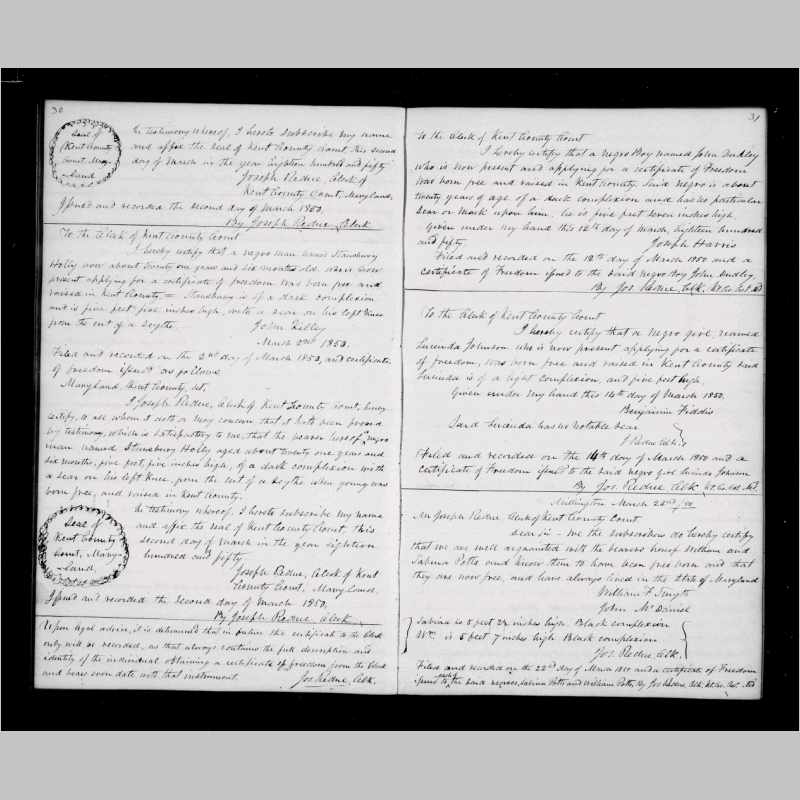 30
Seal of
Kent County
Court, Mary
-land
In testimony whereof, I hereto subscribe my name
and affix the seal of Kent County Court this second
day of March in the year eighteen hundred and fifty
Joseph Redue, Clerk of
Kent County Court, Maryland,
Issued and recorded the second day of March 1850.
By Joseph Redue, Clerk
To the Clerk of Kent County Court
I hereby certify that a negro man named Stansbury
Holly now about twenty one years and six months old who is now
present applying for a certificate of freedom was born free and
raised in Kent County, = Stansbury is of a dark complexion
and is five feet five inches high, with a scar on his left knee
from the cut of a scythe.
John Kelley
March 2nd 1850.
Filed and recorded on the 2nd day of March 1850, and certificate
of freedom issued as follows
Maryland, Kent County, sct.
I Joseph Redue, Clerk of Kent County Court, hereby
certify, to all whom it doth or may concern that it hath been proved
by testimony, which is satisfactory to me, that the bearer hereof, negro
man named Stansbury Holly aged about twenty one years and
six months, five feet, five inches high, of a dark complexion with
a scar on his left knee, from the cut of a scythe when young was
born free, and raised in Kent County.
Seal of
Kent County
Court, Mary-
-land,
In testimony whereof, I hereto subscribe my name
and affix the seal of Kent County Court, this
second day of March in the year eighteen
hundred and fifty
Joseph Redue, Clerk of Kent
County Court, Maryland.
Issued and recorded the second day of March 1850.
By Joseph Redue Clerk
Upon legal advice, it is determined that in future the certificate to the Clerk
only will be recorded, as that always contains the full description and
identity of the individual obtaining a certificate of freedom from the Clerk
and bears even date with that instrument.
Jos Redue, Clk.
31
To the Clerk of Kent County Court
I hereby certify that a negro Boy named John Dudley
who is now present and applying for a certificate of Freedom
was born free and raised in Kent County. Said negro is about
twenty years of age of a dark complexion and has no particular
Scar or mark upon him. he is five feet seven inches high.
Given under my hand this 12th day of March, eighteen hundred
and fifty.
Joseph Harris
Filed and recorded on the 12th day of March 1850 and a
certificate of Freedom issued to the said negro Boy John Dudley.
By Jos Redue, Clk. Kt. Co. Ct. Md
To the Clerk of Kent County Court
I hereby certify that a negro girl named
Lucinda Johnson who is now present applying for a certificate
of freedom, was born free and raised in Kent County said
Lucinda is of a light complexion, and five feet high.
Given under my hand this 14th day of March 1850.
Benjamin Fiddis
Said Lucinda has no notable scar
J Redue Clk.
Filed and recorded on the 14th day of March 1850 and a
certificate of Freedom issued to the said negro girl Lucinda Johnson
By Jos. Redue Clk Kt. Co. Ct. Md.
Millington March 22nd /50
Mr Joseph Redue Clerk of Kent County Court
Dear Sir - We the subscribers do hereby certify
that we are well acquainted with the bearers hereof William and
Sabina Potts and know them to have been free born and that
they are now free, and have always lived in the State of Maryland
William F. Smyth
John McDaniel
Sabina is 5 feet 2½ inches high. Black complexion
Wm. is 5 feet 7 inches high Black complexion
Jos. Redue, Clk.
Filed and recorded on the 22nd day of March 1850 and a certificate of Freedom
issued to each of the said negroes, Sabina Potts and William Potts, By Jos Redue, Clk. Kt. Co. Ct. Md